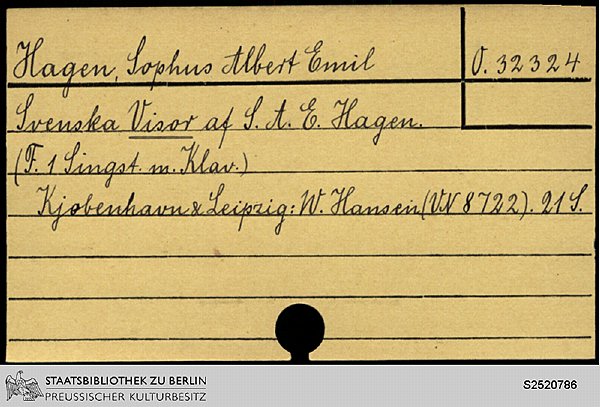 Hagen, Sophus Albert Emil
O. 32324
Svenska Visor af S. A. E. Hagen.
(F. 1 Singst. m. Klav.)
Kjobenhavn & Leipzig: W. Hansen (VN 8722). 21 S.
STAATSBIBLIOTHEK ZU BERLIN
PREUSSISCHER KULTURBESITZ
S2520786